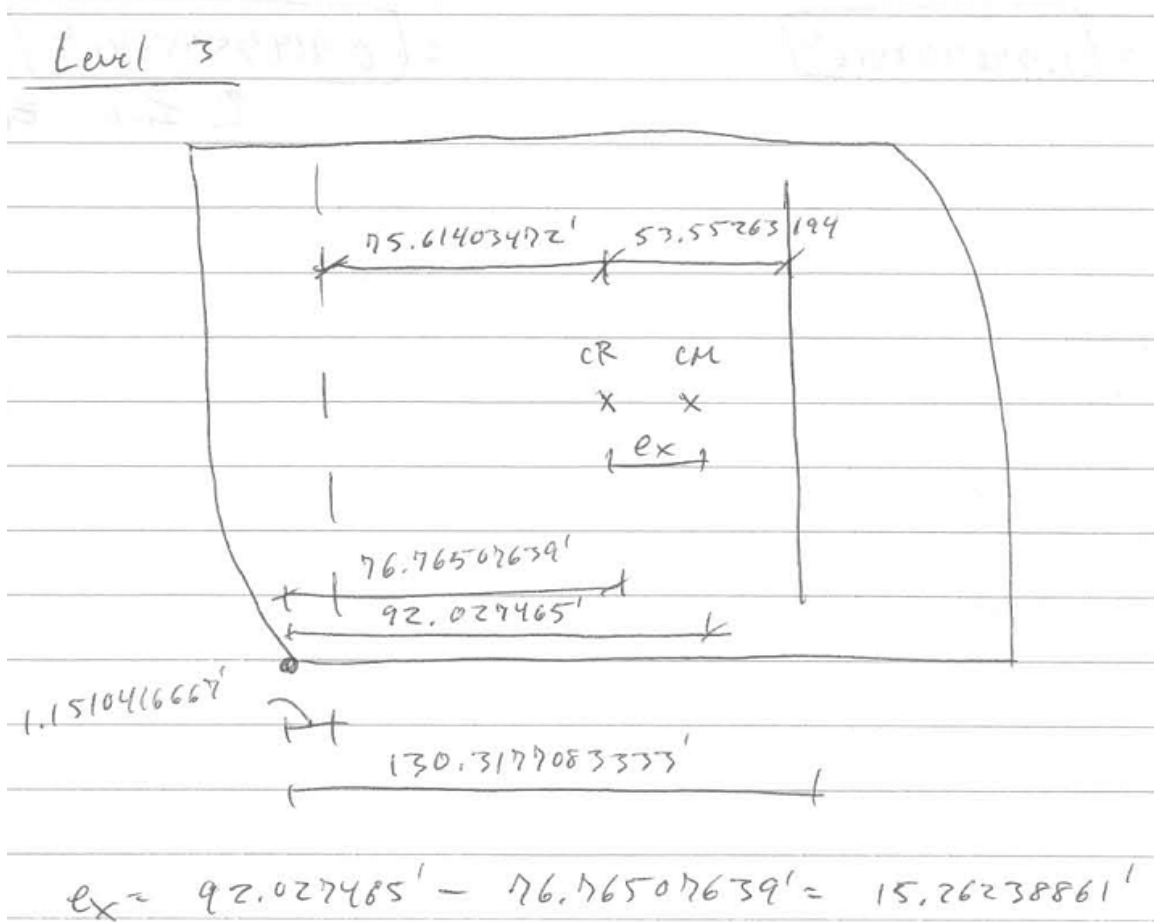 Level 3
75.61403472' 53.55263194
CR CM
ex
76.76507639'
92.027465'
1.1510416667'
130.3177083333'
ex = 92.027465' - 76.76507639' = 15.26238861'